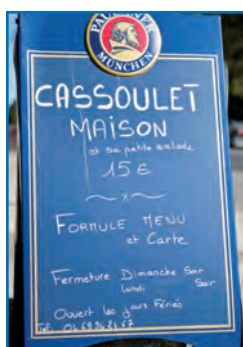 PAULANER
MÜNCHEN
CASSOULET
MAISON
et sa petite salade
15€
FORMULE MENU
et Carte
Fermeture Dimanche Soir
Lundi Soir
Ouvert les jours Fériés
Tél.